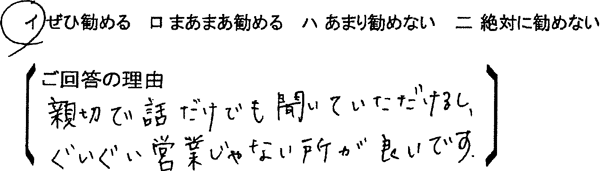 イ ぜひ勧める ロ まあまあ勧める ハ あまり勧めない ニ 絶対に勧めない
ご回答の理由
親切で話だけでも聞いていただけるし、
ぐいぐい営業じゃない所が良いです。